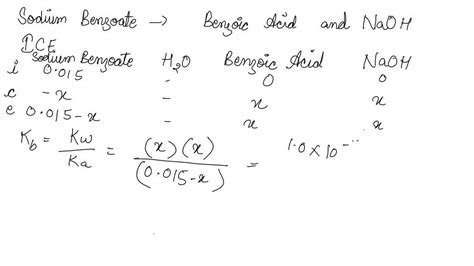 Sodium Benzoate → Benzoic Acid and NaOH
ICE
Sodium Benzoate H₂O Benzoic Acid NaOH
i 0.015 - 0 0
c -x - x x
e 0.015-x - x x
K_b = Kw/Ka = (x)(x)/(0.015-x) = 1.0×10⁻